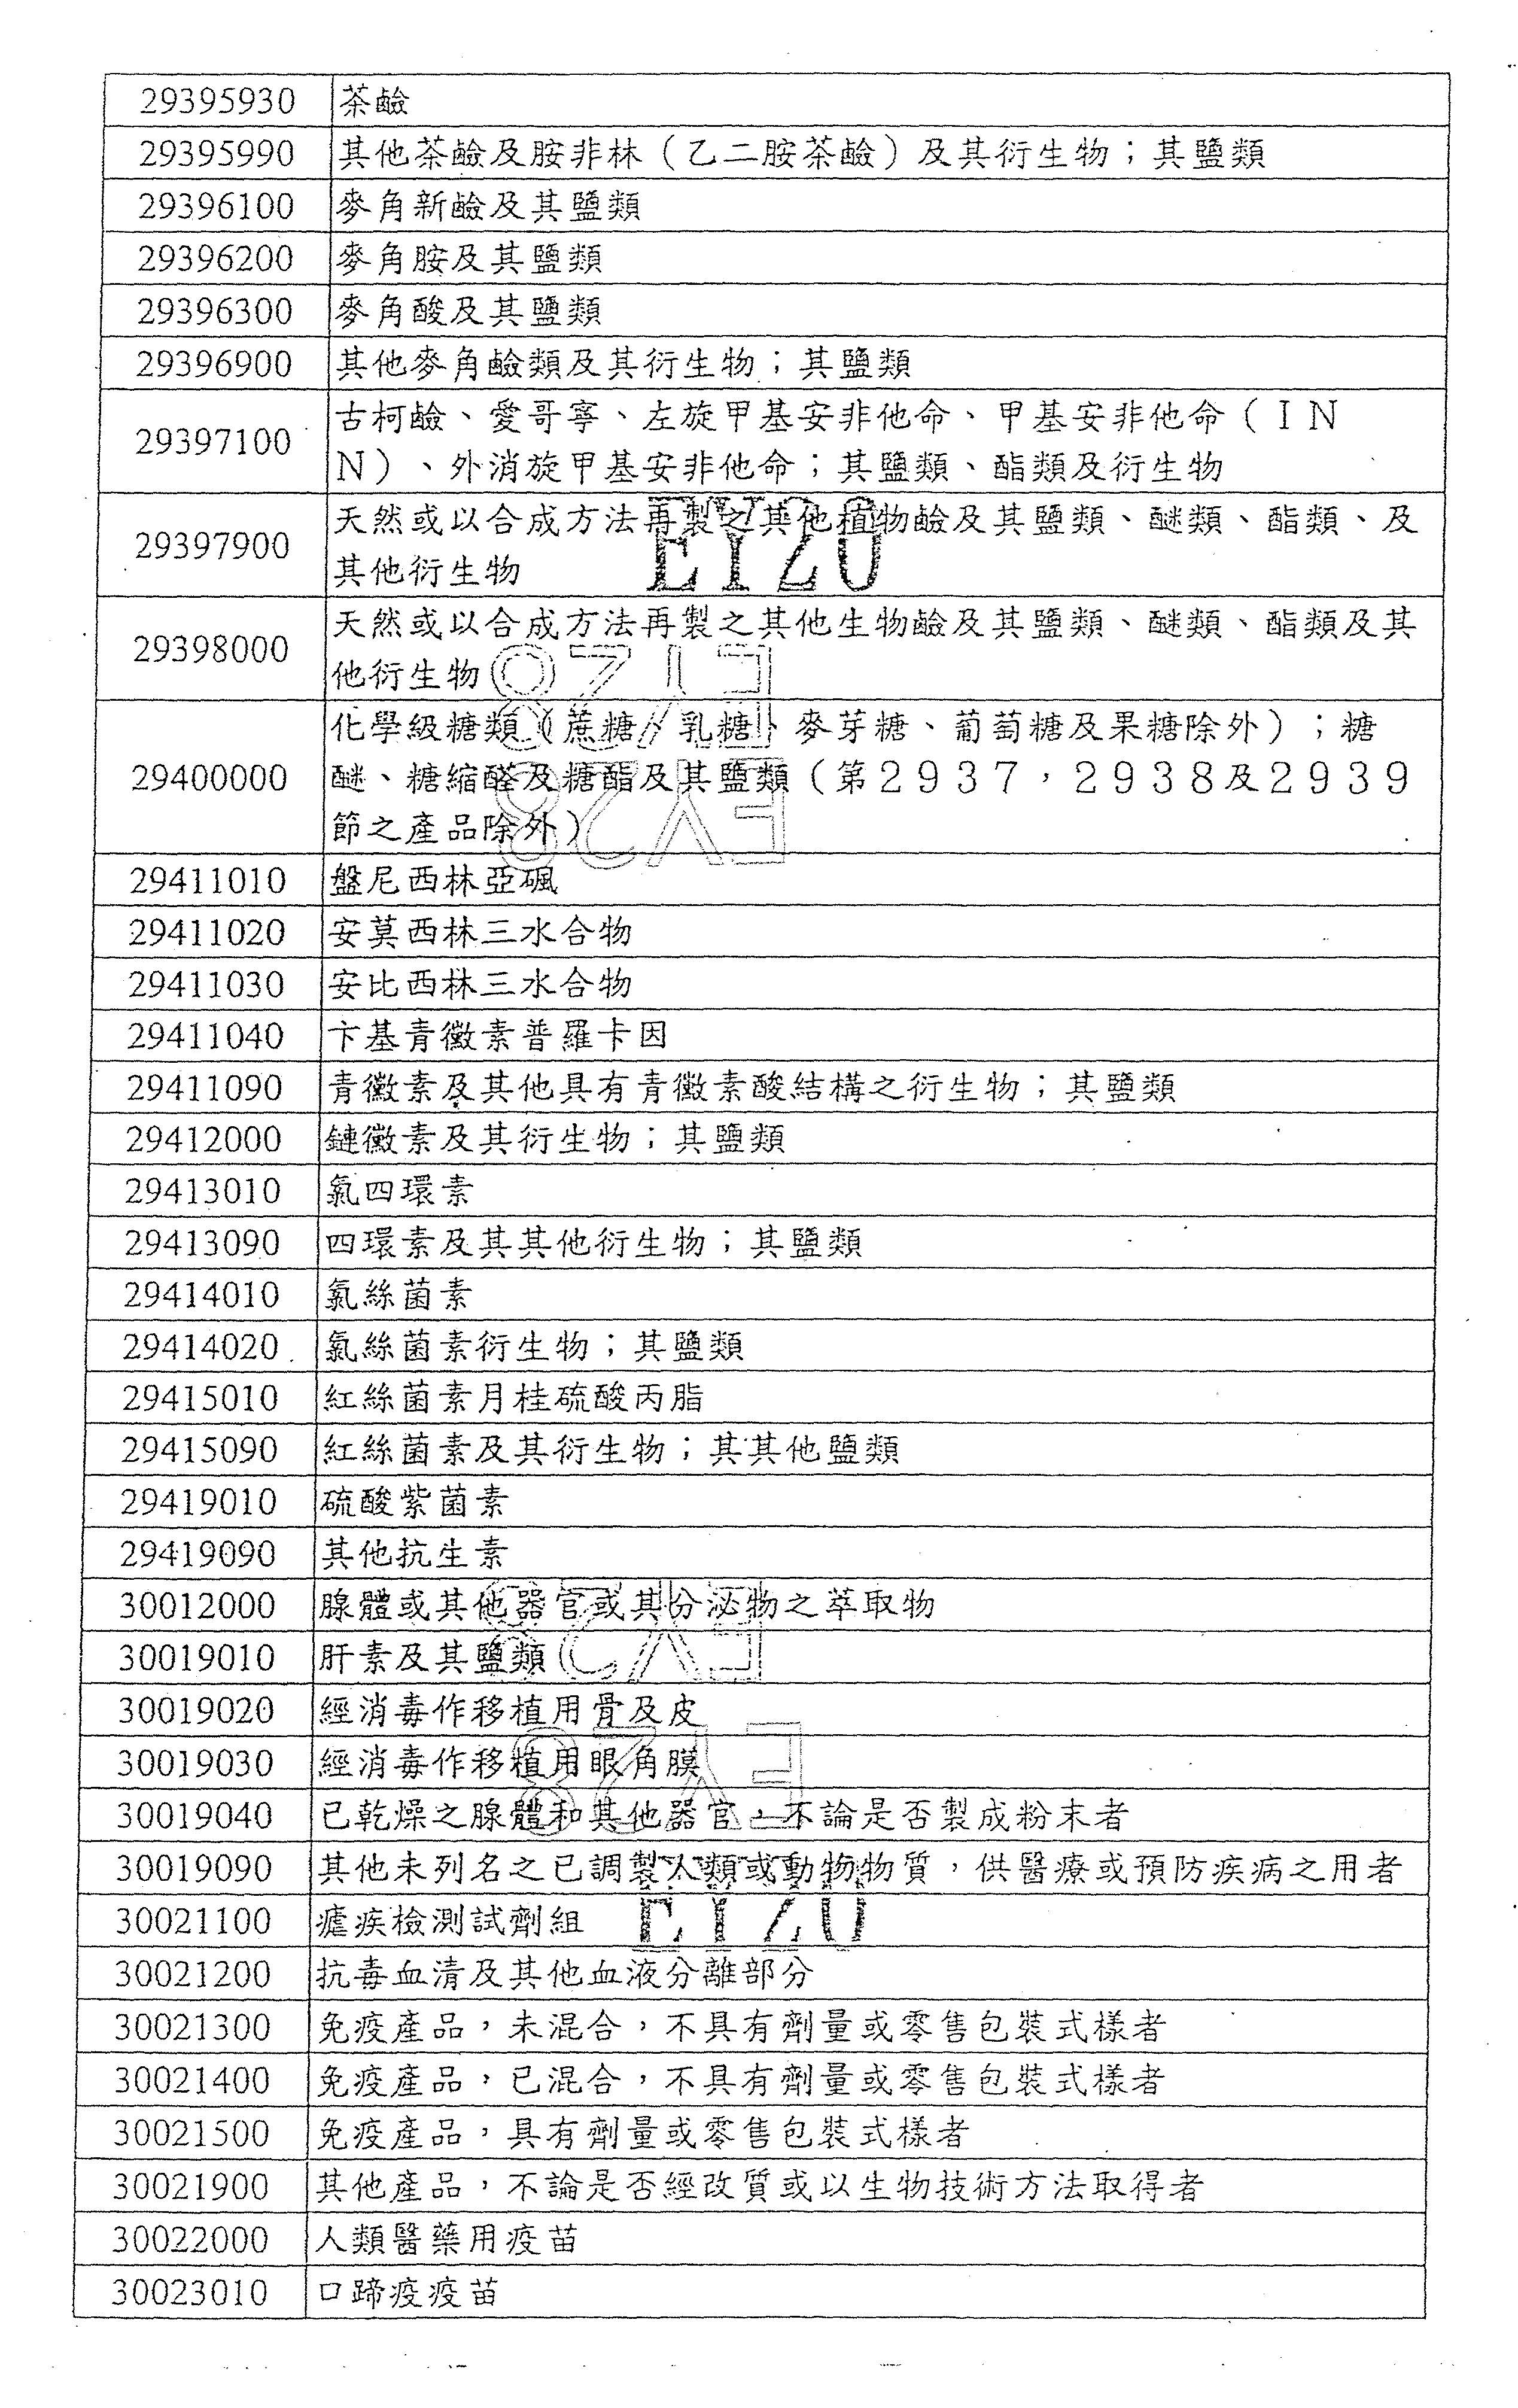 29395930 茶鹼
29395990 其他茶鹼及胺非林（乙二胺茶鹼）及其衍生物；其鹽類
29396100 麥角新鹼及其鹽類
29396200 麥角胺及其鹽類
29396300 麥角酸及其鹽類
29396900 其他麥角鹼類及其衍生物；其鹽類
29397100 古柯鹼、愛哥寧、左旋甲基安非他命、甲基安非他命（ＩＮ
Ｎ）、外消旋甲基安非他命；其鹽類、酯類及衍生物
29397900 天然或以合成方法再製之其他植物鹼及其鹽類、醚類、酯類、及
其他衍生物
29398000 天然或以合成方法再製之其他生物鹼及其鹽類、醚類、酯類及其
他衍生物
29400000 化學級糖類（蔗糖、乳糖、麥芽糖、葡萄糖及果糖除外）；糖
醚、糖縮醛及糖酯及其鹽類（第２９３７，２９３８及２９３９
節之產品除外）
29411010 盤尼西林亞碸
29411020 安莫西林三水合物
29411030 安比西林三水合物
29411040 卞基青黴素普羅卡因
29411090 青黴素及其他具有青黴素酸結構之衍生物；其鹽類
29412000 鏈黴素及其衍生物；其鹽類
29413010 氯四環素
29413090 四環素及其其他衍生物；其鹽類
29414010 氯絲菌素
29414020 氯絲菌素衍生物；其鹽類
29415010 紅絲菌素月桂硫酸丙脂
29415090 紅絲菌素及其衍生物；其其他鹽類
29419010 硫酸紫菌素
29419090 其他抗生素
30012000 腺體或其他器官或其分泌物之萃取物
30019010 肝素及其鹽類
30019020 經消毒作移植用骨及皮
30019030 經消毒作移植用眼角膜
30019040 已乾燥之腺體和其他器官，不論是否製成粉末者
30019090 其他未列名之已調製人類或動物物質，供醫療或預防疾病之用者
30021100 瘧疾檢測試劑組
30021200 抗毒血清及其他血液分離部分
30021300 免疫產品，未混合，不具有劑量或零售包裝式樣者
30021400 免疫產品，已混合，不具有劑量或零售包裝式樣者
30021500 免疫產品，具有劑量或零售包裝式樣者
30021900 其他產品，不論是否經改質或以生物技術方法取得者
30022000 人類醫藥用疫苗
30023010 口蹄疫疫苗